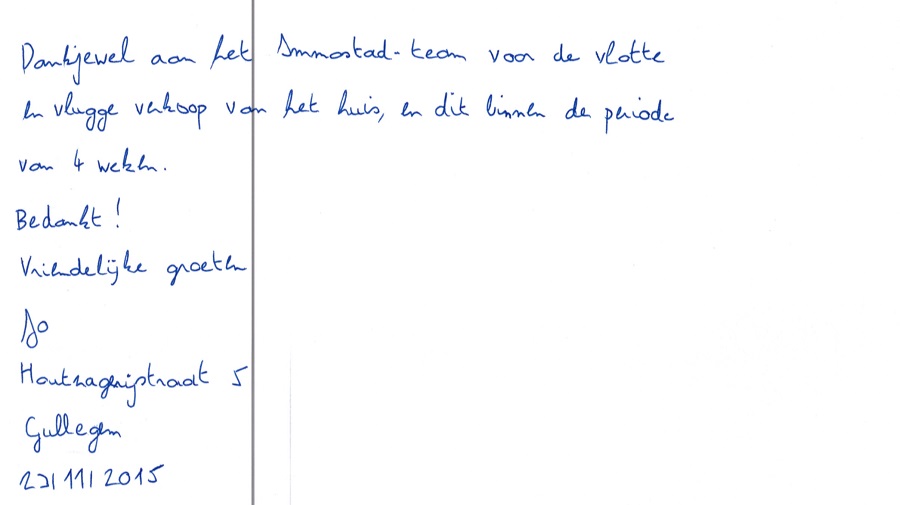 Dankjewel aan het Immostad-team voor de vlotte
en vlugge verkoop van het huis, en dit binnen de periode
van 4 weken.
Bedankt!
Vriendelijke groeten
Jo
Houtzagerijstraat 5
Gullegem
23/11/2015